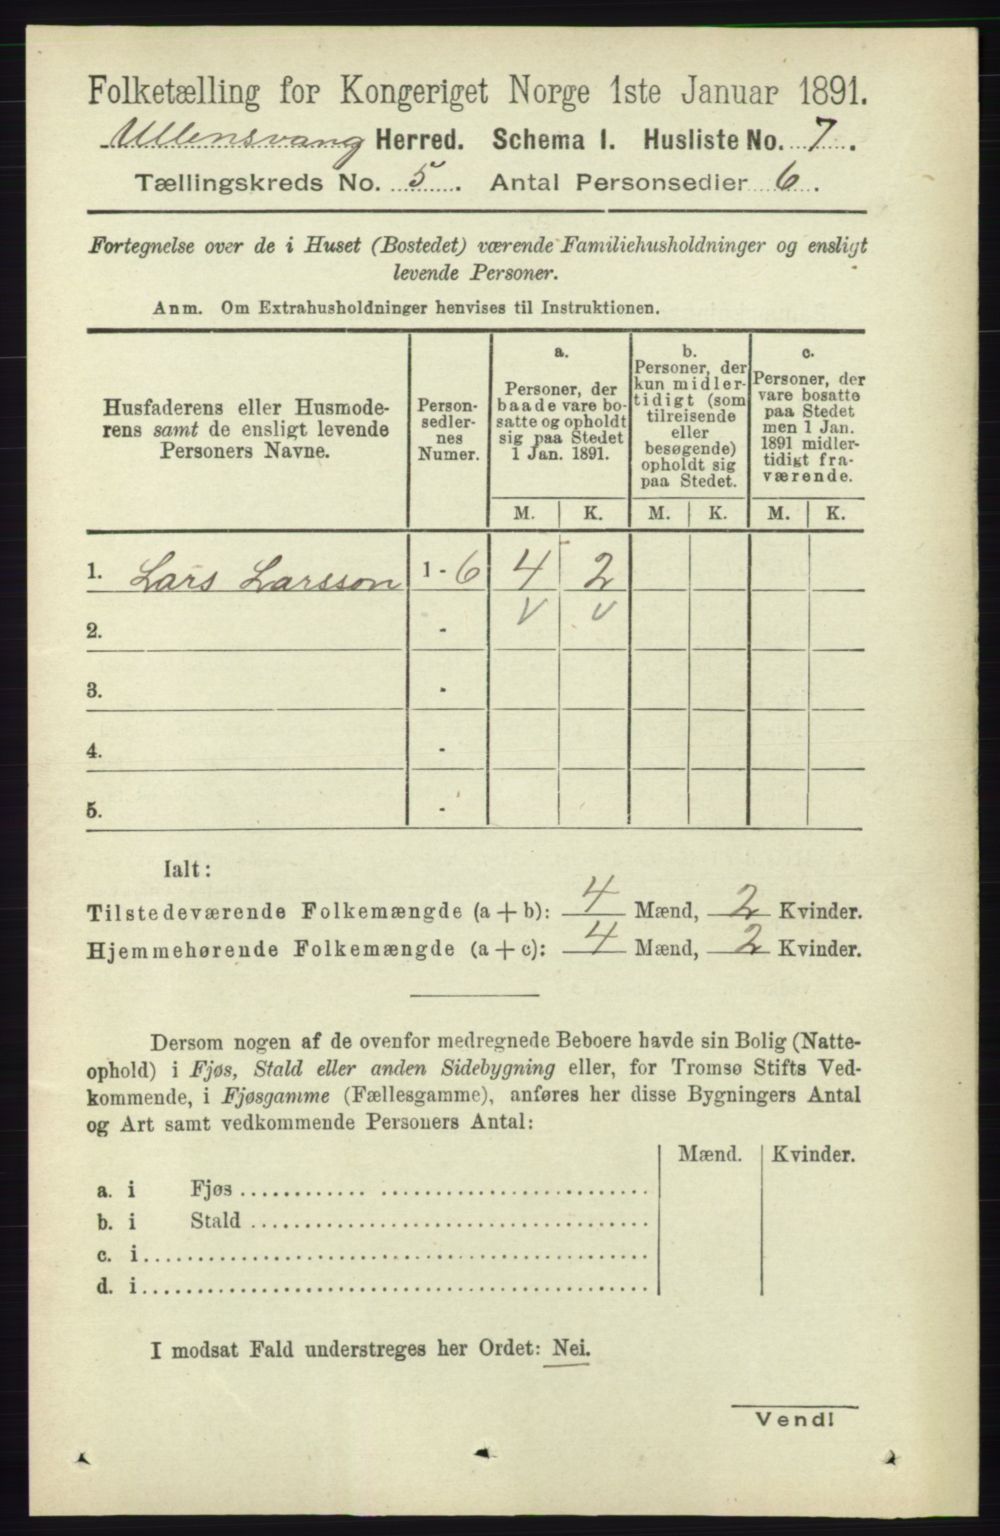 Folketælling for Kongeriget Norge 1ste Januar 1891.
Ullensvang Herred. Schema I. Husliste No. 7.
Tællingskreds No. 5. Antal Personsedler 6.
Fortegnelse over de i Huset (Bostedet) værende Familiehusholdninger og ensligt
levende Personer.
Anm. Om Extrahusholdninger henvises til Instruktionen.
Husfaderens eller Husmode-
rens samt de ensligt levende
Personers Navne.
Person-
sedler-
nes
Numer.
a.
Personer, der
baade vare bo-
satte og opholdt
sig paa Stedet
1 Jan. 1891.
b.
Personer, der
kun midler-
tidigt (som
tilreisende
eller
besøgende)
opholdt sig
paa Stedet.
c.
Personer, der
vare bosatte
paa Stedet
men 1 Jan.
1891 midler-
tidigt fra-
værende.
M. K. M. K. M. K.
1. Lars Larsson 1 - 6 4 2
2. - v v
3. -
4. -
5. -
Ialt:
Tilstedeværende Folkemængde (a + b): 4 Mænd, 2 Kvinder.
Hjemmehørende Folkemængde (a + c): 4 Mænd, 2 Kvinder.
Dersom nogen af de ovenfor medregnede Beboere havde sin Bolig (Natte-
ophold) i Fjøs, Stald eller anden Sidebygning eller, for Tromsø Stifts Ved-
kommende, i Fjøsgamme (Fællesgamme), anføres her disse Bygningers Antal
og Art samt vedkommende Personers Antal:
Mænd. Kvinder.
a. i Fjøs
b. i Stald
c. i
d. i
I modsat Fald understreges her Ordet: Nei.
Vend!